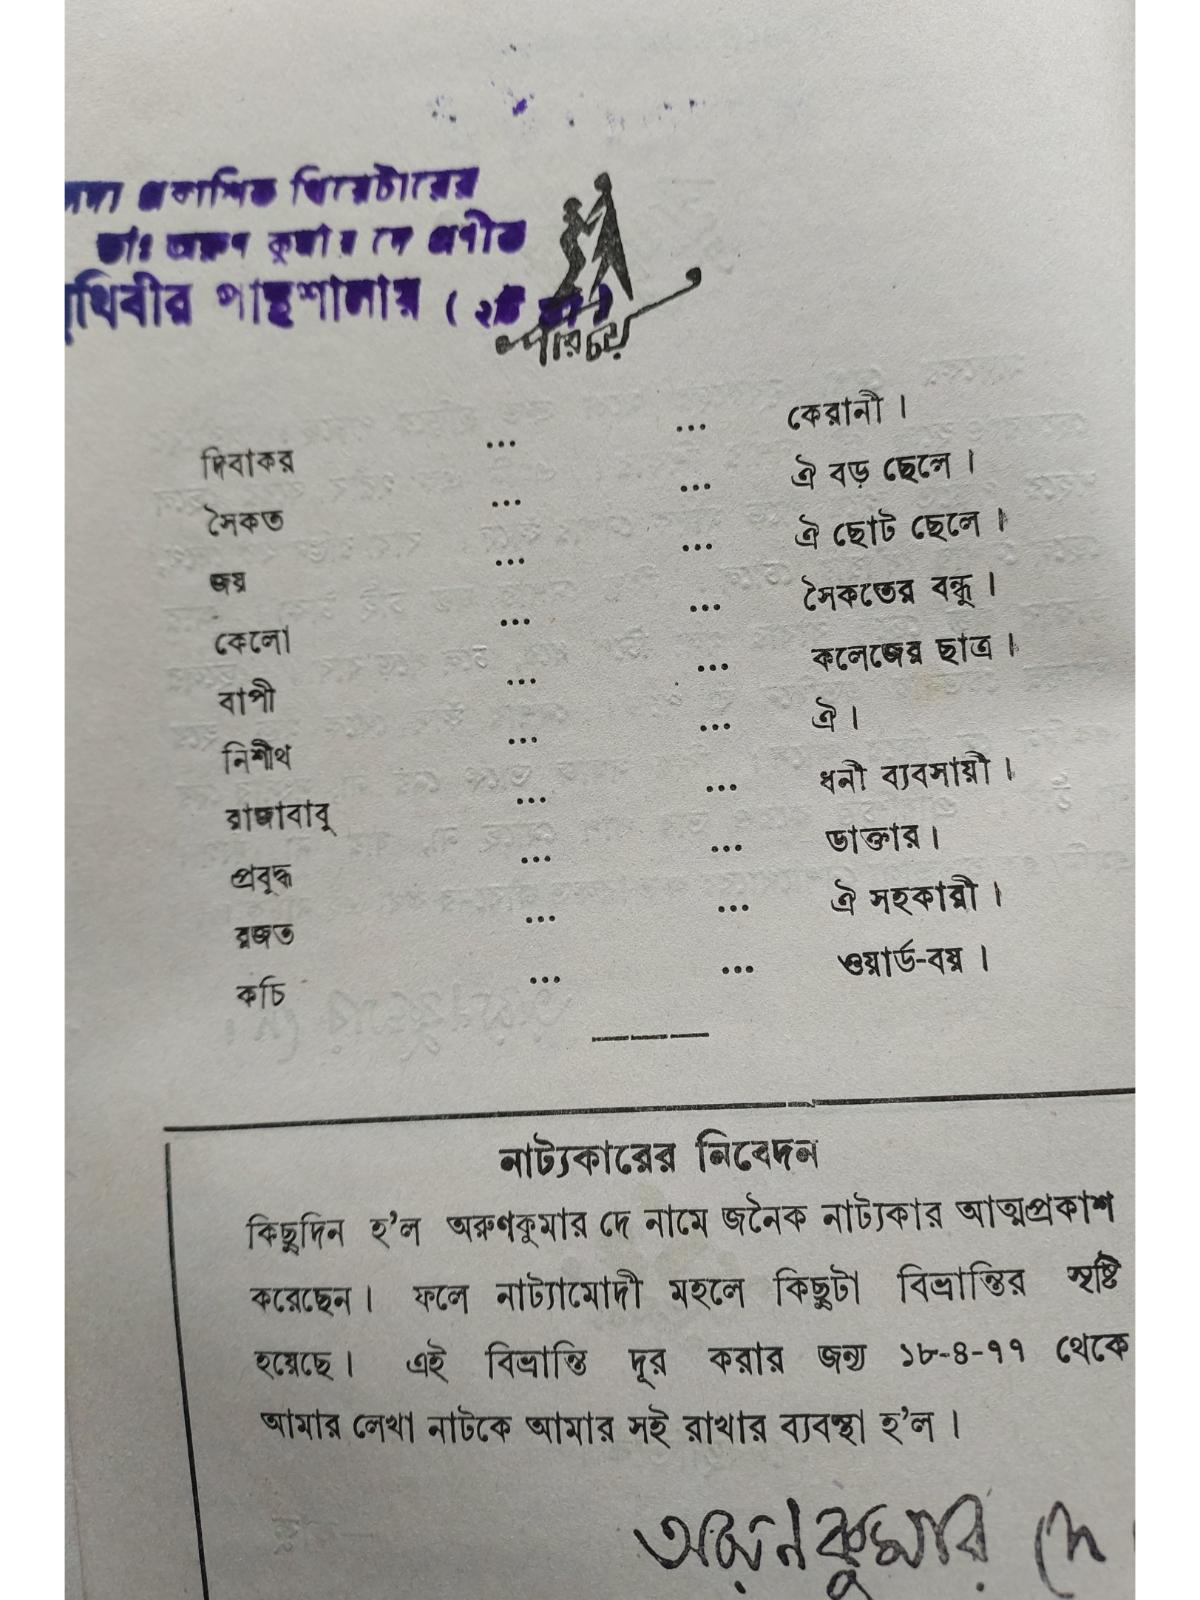 প্রকাশিত থিয়েটারের
ডাঃ অরুণ কুমার দে প্রণীত
পৃথিবীর পান্থশালায় ( ২টি
পরিচয়
দিবাকর ... ... কেরানী ।
সৈকত ... ... ঐ বড় ছেলে ।
জয় ... ... ঐ ছোট ছেলে ।
কেলো ... ... সৈকতের বন্ধু ।
বাপী ... ... কলেজের ছাত্র ।
নিশীথ ... ... ঐ ।
রাজাবাবু ... ... ধনী ব্যবসায়ী ।
প্রবুদ্ধ ... ... ডাক্তার ।
রজত ... ... ঐ সহকারী ।
কচি ... ... ওয়ার্ড-বয় ।
নাট্যকারের নিবেদন
কিছুদিন হ'ল অরুণকুমার দে নামে জনৈক নাট্যকার আত্মপ্রকাশ
করেছেন । ফলে নাট্যামোদী মহলে কিছুটা বিভ্রান্তির সৃষ্টি
হয়েছে । এই বিভ্রান্তি দূর করার জন্য ১৮-৪-৭৭ থেকে
আমার লেখা নাটকে আমার সই রাখার ব্যবস্থা হ'ল ।
অরুণকুমার দে